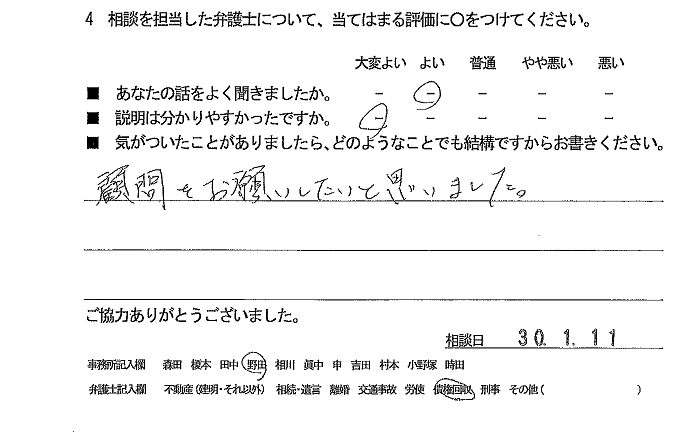 4 相談を担当した弁護士について、当てはまる評価に○をつけてください。
大変よい よい 普通 やや悪い 悪い
■ あなたの話をよく聞きましたか。 － － － － －
■ 説明は分かりやすかったですか。 － － － － －
■ 気がついたことがありましたら、どのようなことでも結構ですからお書きください。
顧問をお願いしたいと思いました。
ご協力ありがとうございました。
相談日 30.1.11
事務所記入欄 森田 榎本 田中 野田 相川 眞中 申 吉田 村本 小野塚 時田
弁護士記入欄 不動産(建明・それ以外) 相続・遺言 離婚 交通事故 労使 債権回収 刑事 その他( )